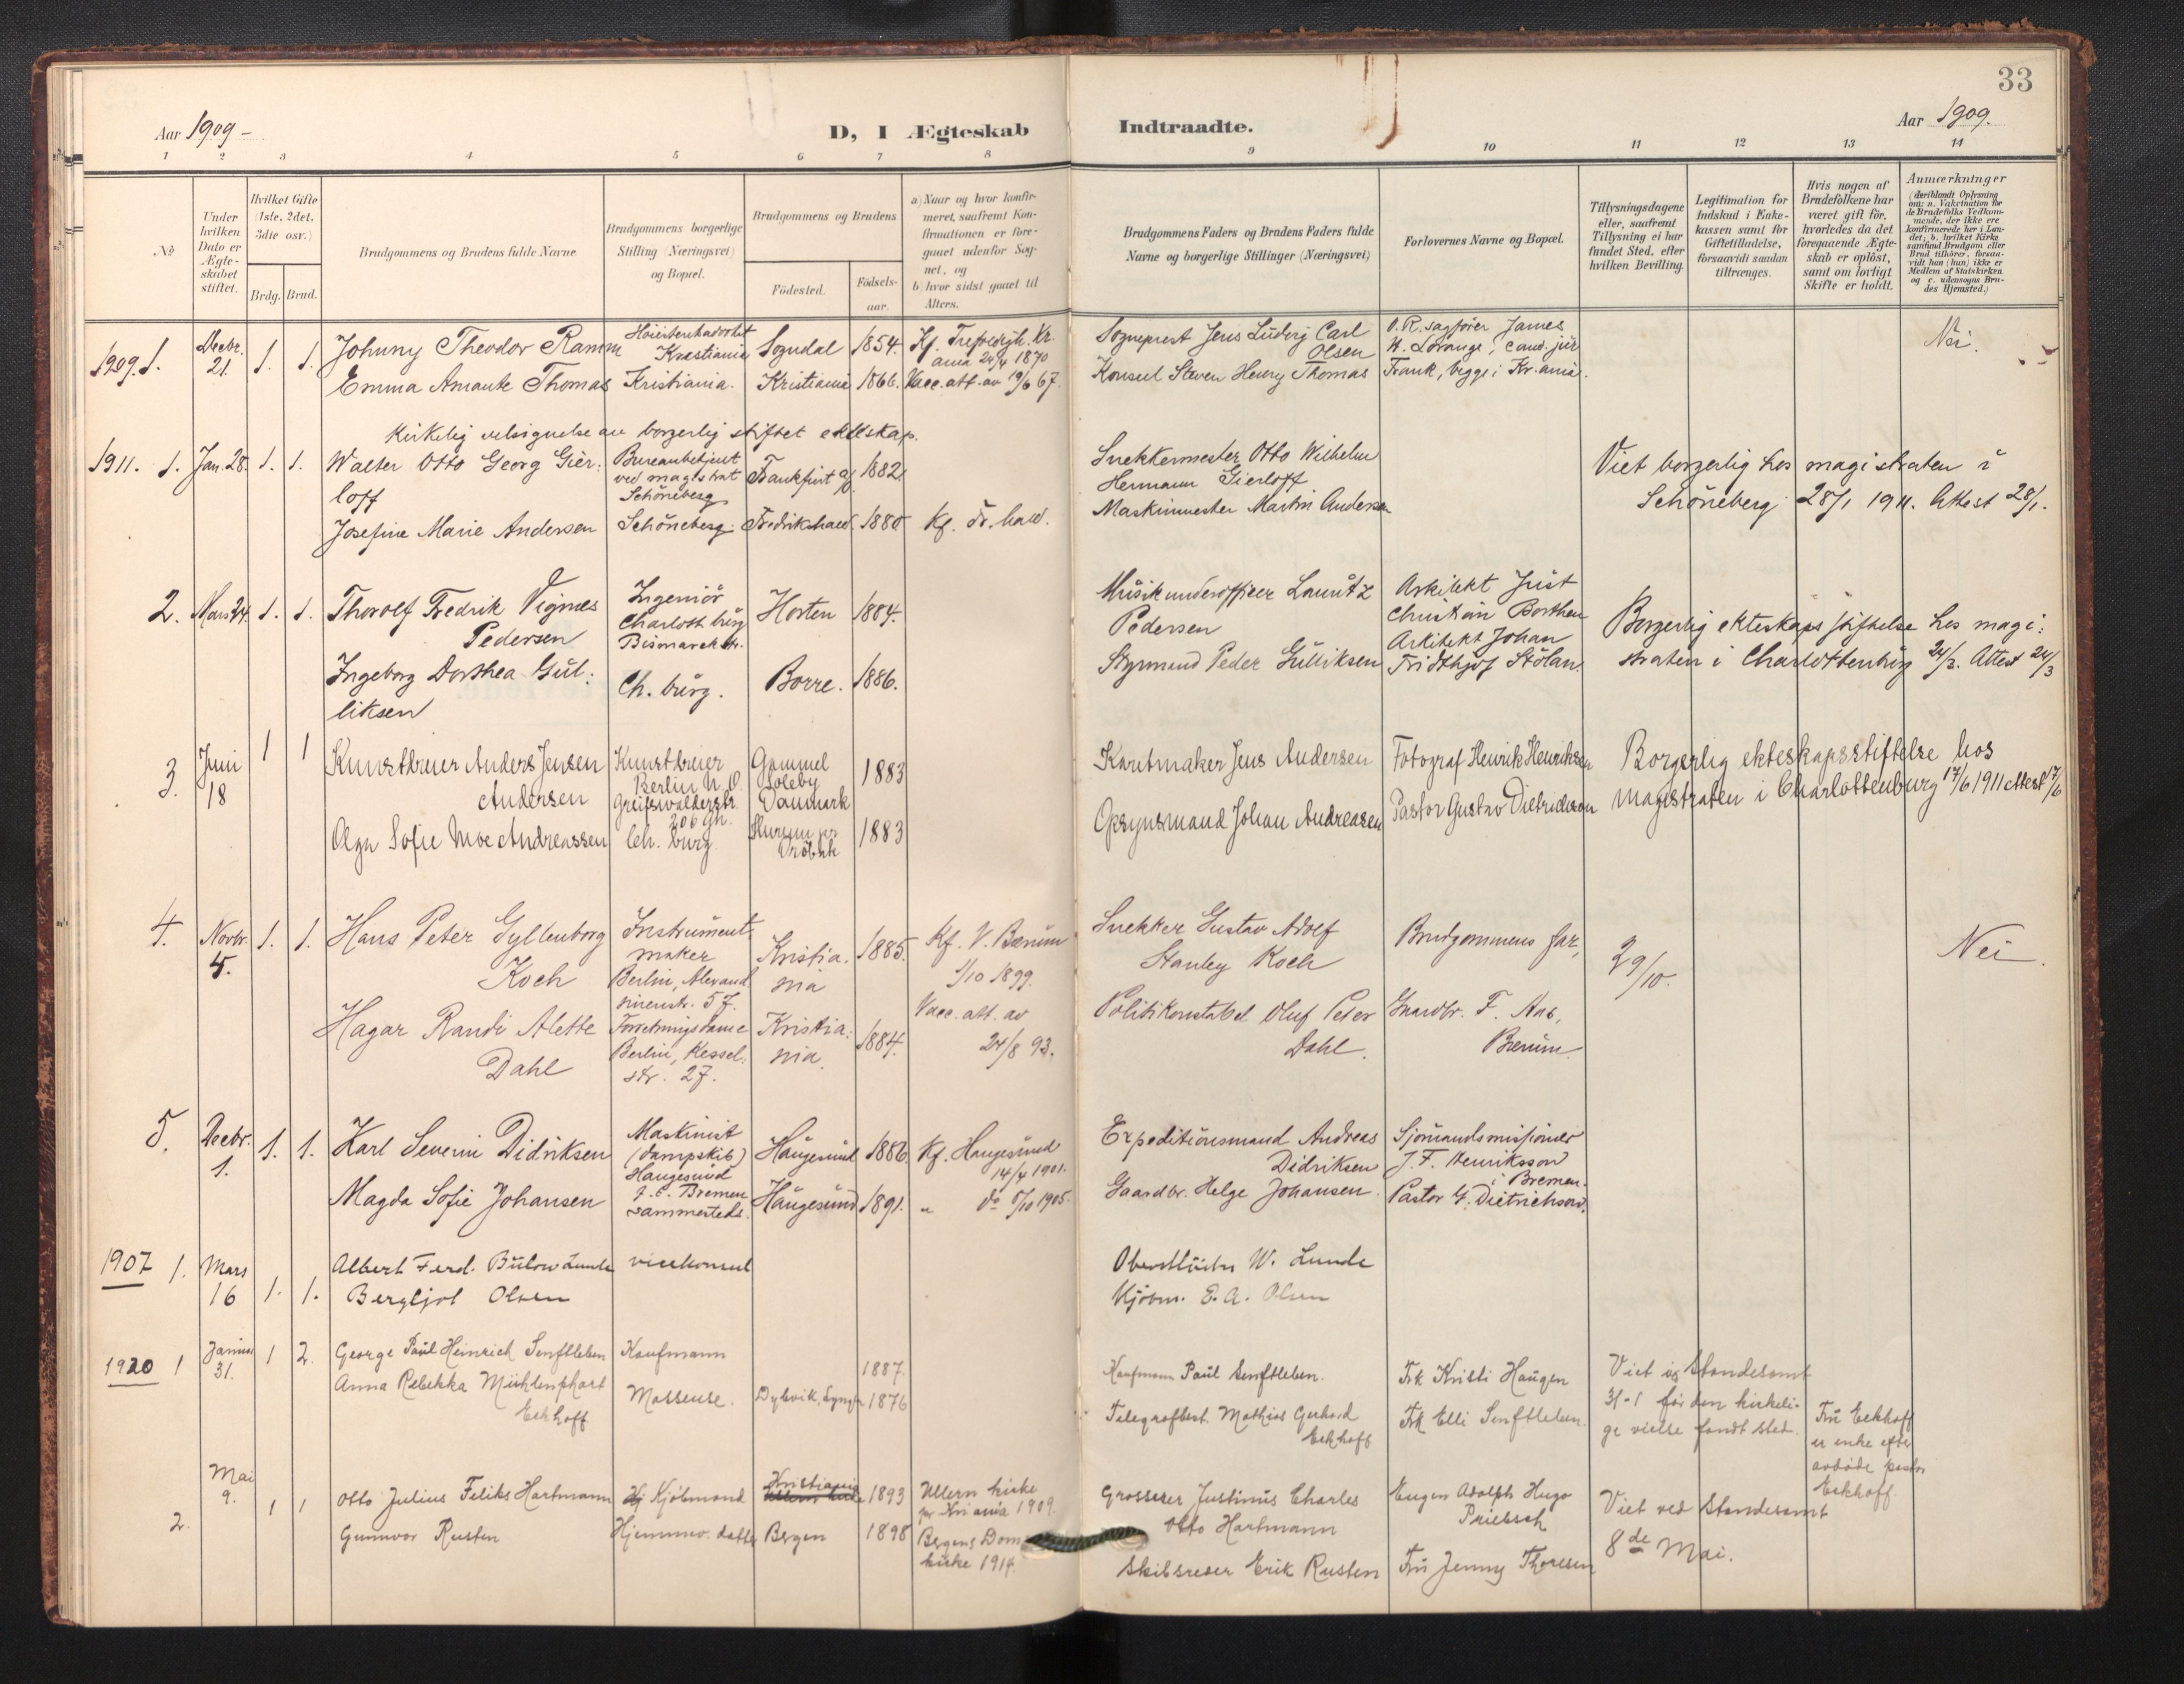 33
Aar 1909 -
D, I Ægteskab
Indtraadte.
Aar 1909.
1 2 3 4 5 6 7 8 9 10 11 12 13 14
No
Under hvilken Dato er Ægte-skabet stiftet.
Hvilket Gifte (1ste, 2det, 3die osv.)
Brdg. Brud.
Brudgommens og Brudens fulde Navne
Brudgommens borgerlige Stilling (Næringsvei) og Bopæl.
Brudgommens og Brudens
Födested.
Födsels-aar.
a) Naar og hvor konfir-
meret, saafremt Kon-
firmationen er fore-
gaaet udenfor Sog-
net, og
b) hvor sidst gaaet til
Alters.
Brudgommens Faders og Brudens Faders fulde
Navne og borgerlige Stillinger (Næringsvei)
Forlovernes Navne og Bopæl.
Tillysningsdagene
eller, saafremt
Tillysning ei har
fundet Sted, efter
hvilken Bevilling.
Legitimation for
Indskud i Enke-
kassen samt for
Giftetilladelse,
forsaavidt saadan
tiltrænges.
Hvis nogen af
Brudefolkene har
været gift för,
hvorledes da det
foregaaende Ægte-
skab er oplöst,
samt om lovligt
Skifte er holdt.
Anmærkninger
(deriblandt Oplysning
om: a. Vakcination for
de Brudefolks Vedkom-
mende, der ikke ere
konfirmerede her i Lan-
det; b. hvilket Kirke
samfund Brudgom eller
Brud tilhörer, forsaa-
vidt han (hun) ikke er
Medlem af Statskirken
og c. udensogns Bru-
des Hjemsted.)
1909. 1. Decbr. 21. 1. 1.
Johnny Theodor Ramm
Höiesteretsadvokat
Kristiania
Sogndal 1854.
Kf. Trefoldigh. Kr.
ania 24/4 1870
Sogneprest Jens Ludvig Carl
Olsen
O.R. sagförer James
W. Lorange, cand. jur
Nei.
Emma Amante Thomas
Kristiania.
Kristiania 1866.
Vacc. att. av 19/6 67.
Konsul Steven Henry Thomas
Frank, begge i Kr.ania.
Kirkelig velsignelse av borgerlig stiftet ekteskap.
1911. 1. Jan. 28. 1. 1.
Walter Otto Georg Gier:
loff
Bureaubetjent
ved magistrat
Schöneberg
Frankfurt a/O 1882.
Snekkermester Otto Wilhelm
Hermann Gierloff
Viet borgerlig hos magistraten i
Schöneberg 28/1 1911. Attest 28/1.
Josefine Marie Andersen
Schöneberg.
Fredrikshald 1880
Kf. Fr.hald.
Maskinmester Martin Andersen
2. Mars 24. 1. 1.
Thorolf Fredrik Vignes
Pedersen
Ingeniör
Charlottbürg
Bismarckstr.
Horten 1884.
Müsikunderofficer Laüritz
Pedersen
Arkitekt Just
Christian Borthen
Arkitekt Johan
Fridthjof Stölan
Borgerlig ekteskaps stiftelse hos magi:
straten i Charlottenbürg 24/3. Attest 24/3
Ingeborg Dorthea Gül:
liksen
Ch. bürg.
Borre. 1886.
Styrmand Peder Gülliksen
3. Juni 18 1 1
Kunstdreier Anders Jensen
Andersen
Kunstdreier
Berlin N.O.
Greifswalderstr.
206 Gh.
Gammel
Söleby
Danmark
1883
Karetmaker Jens Andersen
Fotograf Henrik Henriksen
Borgerlig ekteskapsstiftelse hos
magistraten i Charlottenburg 17/6 1911 attest 17/6
Olga Sofie Moe Andreassen
Ch. burg.
Hurum per
Dröbak
1883
Opsynsmand Johan Andreasen
Pastor Gustav Dietrichson
4. Novbr. 4. 1. 1.
Hans Peter Gyllenborg
Koch
Instrument-
maker
Berlin, Alexand
rinenstr. 57.
Kristia:
nia
1885.
Kf. V. Bærüm
1/10 1899.
Snekker Gustav Adolf
Stanley Koch
Brudgommens far,
29/10.
Nei.
Hagar Randi Alette
Dahl
Forretningsdame
Berlin, Kessel:
str. 27.
Kristia:
nia.
1884.
Vacc. att. av
24/8 93.
Politikonstabel Oluf Peter
Dahl.
Gaardbr. F. Aas,
Bærüm.
5. Decbr. 1. 1. 1.
Karl Severin Didriksen
Maskinist
(dampskib)
Haugesund
f. t. Bremen
Haügesünd 1886
Kf. Haugesünd
14/4 1901.
Expeditionsmand Andreas
Didriksen
Sjömandsmisjonær
J. F. Henriksson
i Bremen.
Magda Sofie Johansen
sammesteds.
Haügesünd 1891.
" do 8/10 1905.
Gaardbr. Helge Johansen.
Pastor G. Dietrichson.
1907 1. Mars 16 1. 1.
Albert Ferd. Bülow Lunde
visekonsul
Oberstlöitn W. Lunde
Bergljot Olsen
Kjöbm. E. A. Olsen
1920 1 Januar 31. 1 2.
George Paül Heinrich Senftleben
Kaufmann
1887.
Kaufmann Paül Senftleben.
Frk Kristi Haügen
Viet av Standesamt
31-1 för den kirkeli-
ge vielse fandt sted.
Anna Rebekka Mühlenphort
Eckhoff
Masseuse.
1876
Telegrafbest. Mathias Gerhard
Eckhoff
Frk Elli Senftleben.
Frü Eckhoff
er enke efter
avdöde pastor
Eckhoff.
2. Mai 9. 1 1
Otto Julius Feliks Hartmann
Kjöbmand
Kristiania
1893
Ullern kirke
pr Kr.ania 1909.
Grosserer Justinüs Charles
Otto Hartmann
Eugen Adolph Hugo
Priebsch
Viet ved Standesamt
8de Mai.
Gunnvor Rusten
Hjemmev. datter
Bergen 1898
Bergens Dom
kirke 1914.
Skibsreder Erik Rusten
Frü Jenny Thoresen